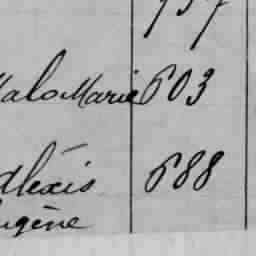 Malo Marie 603
Alexis 688
Eugène